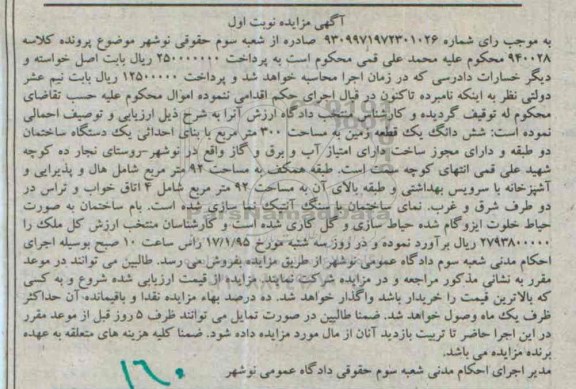 آگهی مزایده نوبت اول
به موجب رای شماره ۹۳۰۹۹۷۱۹۷۲۳۰۱۰۲۶ صادره از شعبه سوم حقوقی نوشهر موضوع پرونده کلاسه
۹۴۰۰۲۸ محکوم علیه محمد علی قمی محکوم است به پرداخت ۲۵۰۰۰۰۰۰۰۰ ریال بابت اصل خواسته و
دیگر خسارات دادرسی که در زمان اجرا محاسبه خواهد شد و پرداخت ۱۲۵۰۰۰۰۰ ریال بابت نیم عشر
دولتی نظر به اینکه نامبرده تاکنون در قبال اجرای حکم اقدامی ننموده اموال محکوم علیه حسب تقاضای
محکوم له توقیف گردیده و کارشناس منتخب دادگاه ارزش آنرا به شرح ذیل ارزیابی و توصیف اجمالی
نموده است: شش دانگ یک قطعه زمین به مساحت ۳۰۰ متر مربع با بنای احداثی یک دستگاه ساختمان
دو طبقه و دارای مجوز ساخت دارای امتیاز آب و برق و گاز واقع در نوشهر-روستای نجار ده کوچه
شهید علی قمی انتهای کوچه سمت است. طبقه همکف به مساحت ۹۲ متر مربع شامل هال و پذیرایی و
آشپزخانه با سرویس بهداشتی و طبقه بالای آن به مساحت ۹۲ متر مربع شامل ۴ اتاق خواب و تراس در
دو طرف شرق و غرب. نمای ساختمان با سنگ آنتیک نما سازی شده است. بام ساختمان به صورت
حیاط خلوت ایزوگام شده حیاط سازی و گل کاری شده است و کارشناسان منتخب ارزش کل ملک را
۲۷۹۳۸۰۰۰۰۰ ریال برآورد نموده و در روز سه شنبه مورخ ۱۷/۱/۹۵ راس ساعت ۱۰ صبح بوسیله اجرای
احکام مدنی شعبه سوم دادگاه عمومی نوشهر از طریق مزایده بفروش می رسد. طالبین می توانند در موعد
مقرر به نشانی مذکور مراجعه و در مزایده شرکت نمایند. مزایده از قیمت ارزیابی شده شروع و به کسی
که بالاترین قیمت را خریدار باشد واگذار خواهد شد. ده درصد بهاء مزایده نقدا و باقیمانده آن حداکثر
ظرف یک ماه وصول خواهد شد. ضمنا طالبین در صورت تمایل می توانند ظرف ۵ روز قبل از موعد مقرر
در این اجرا حاضر تا ترتیب بازدید آنان از مال مورد مزایده داده شود. ضمنا کلیه هزینه های متعلقه به عهده
برنده مزایده می باشد.
مدیر اجرای احکام مدنی شعبه سوم حقوقی دادگاه عمومی نوشهر
۱۶۰